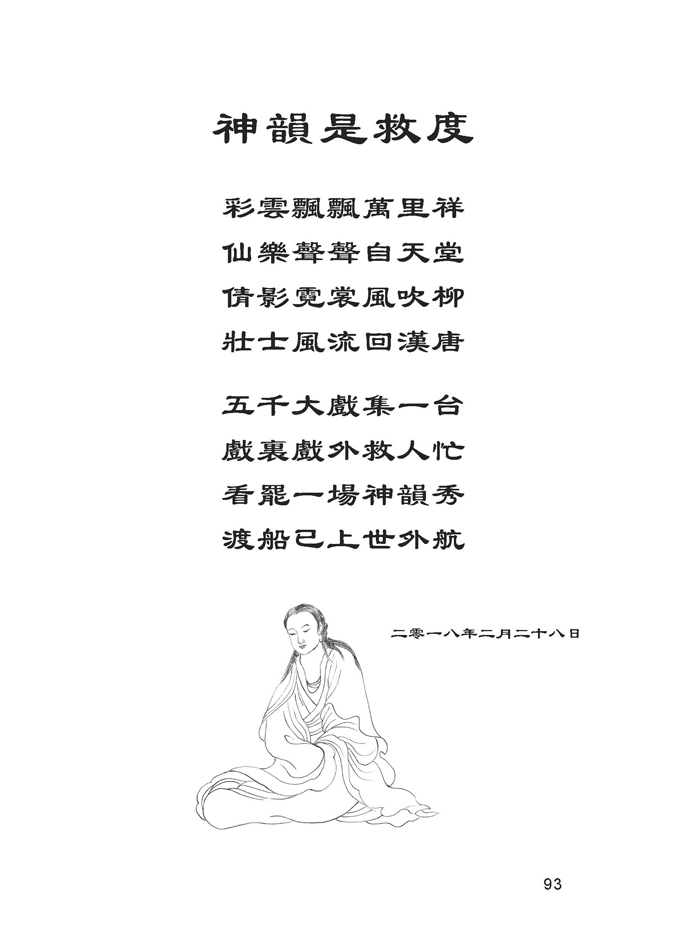 神韻是救度
彩雲飄飄萬里祥
仙樂聲聲自天堂
倩影霓裳風吹柳
壯士風流回漢唐
五千大戲集一台
戲裏戲外救人忙
看罷一場神韻秀
渡船已上世外航
二零一八年二月二十八日
93